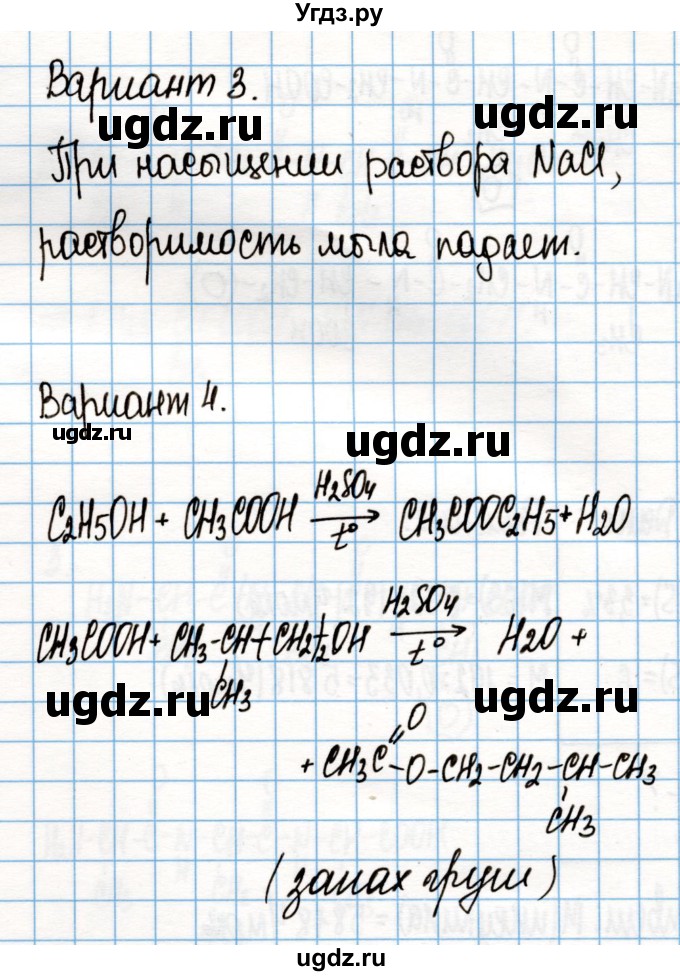 Угдз.ру
Вариант 3.
ugdz.ru ugdz.ru
При насыщении раствора NaCl,
растворимость мыла падает.
Вариант 4.
ugdz.ru ugdz.ru
C2H5OH + CH3COOH H2SO4 t° → CH3COOC2H5 + H2O
CH3COOH + CH3-CH-(CH2)2OH H2SO4 t° → H2O +
CH3
ugdz.ru ugdz.ru
+ CH3C=O-O-CH2-CH2-CH-CH3
CH3
(запах груш)
ugdz.ru ugdz.ru